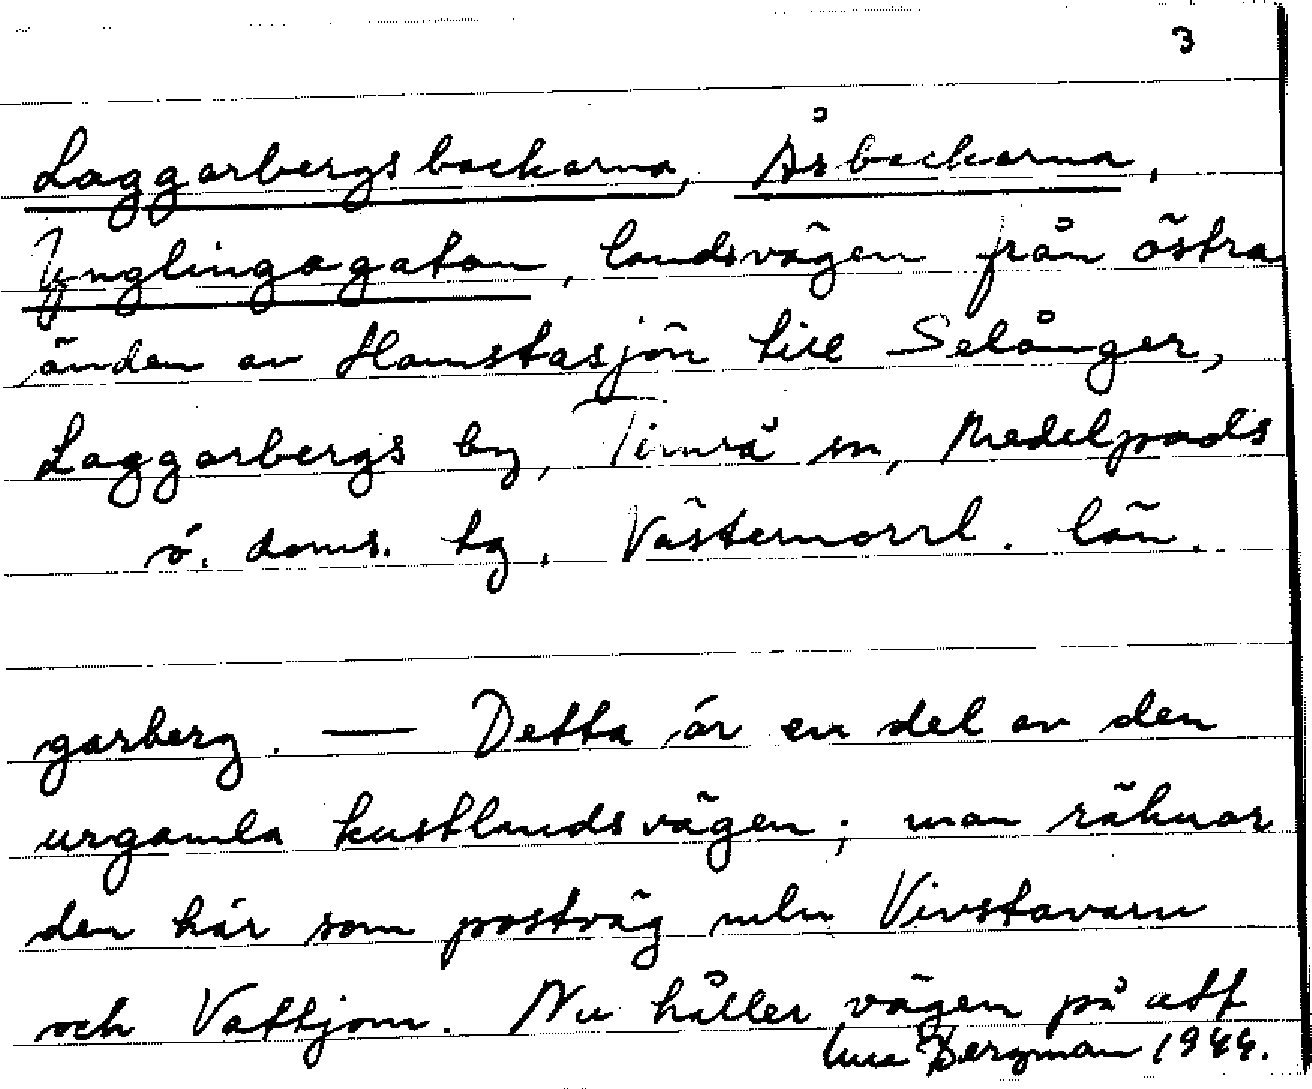 3
Laggarbergsbackarna, Åsbackarna,
Ynglingagatan, landsvägen från östra
änden av Hamstasjön till Selånger,
Laggarbergs by, Timrå sn, Medelpads
ö. doms. tg, Västernorrl. län.
garberg. — Detta är en del av den
urgamla kustlandsvägen; man räknar
den här som postväg mln Vivstavarv
och Vattjom. Nu håller vägen på att
Bergman 1944.